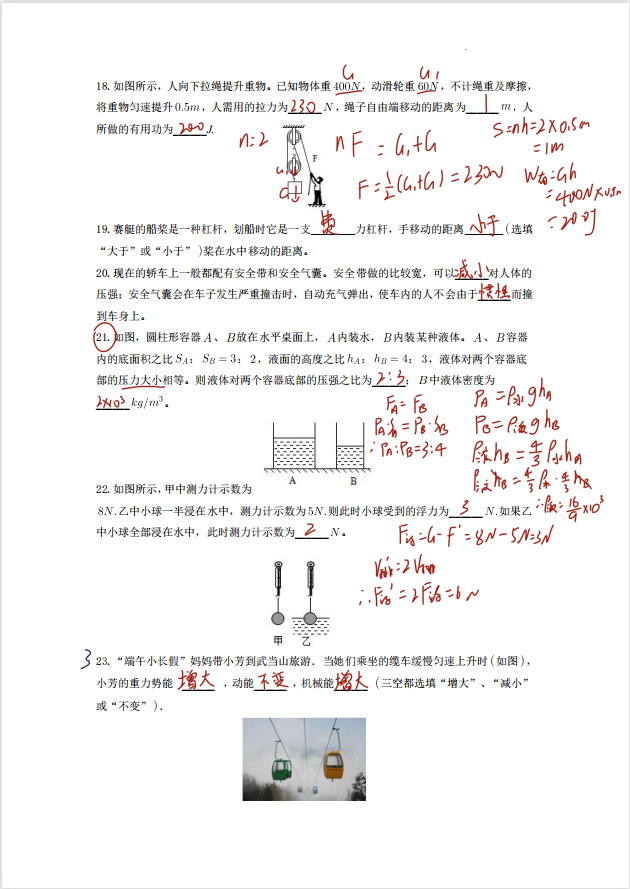 18. 如图所示，人向下拉绳提升重物。已知物体重400N，动滑轮重60N，不计绳重及摩擦，
G
G1
将重物匀速提升0.5m，人需用的拉力为230N，绳子自由端移动的距离为1m，人
所做的有用功为200J.
n=2
F
nF = G1+G
F=1/2(G1+G)=230N
S=nh=2×0.5m
=1m
W有=Gh
=400N×0.5m
=200J
19. 赛艇的船桨是一种杠杆，划船时它是一支费力杠杆，手移动的距离小于（选填
“大于”或“小于”)桨在水中移动的距离。
20. 现在的轿车上一般都配有安全带和安全气囊。安全带做的比较宽，可以减小对人体的
压强；安全气囊会在车子发生严重撞击时，自动充气弹出，使车内的人不会由于惯性而撞
到车身上。
21. 如图，圆柱形容器A、B放在水平桌面上，A内装水，B内装某种液体。A、B容器
内的底面积之比SA：SB=3：2，液面的高度之比hA：hB=4：3，液体对两个容器底
部的压力大小相等。则液体对两个容器底部的压强之比为2:3；B中液体密度为
2×10³kg/m³。
FA=FB
PA·SA=PB·SB
∴PA:PB=3:4
PA=ρ水ghA
PB=ρ液ghB
ρ液hB=4/3ρ水hA
ρ液hB=4/3ρ水·4/3hB
∴ρ液=16/9×10³
A
B
22. 如图所示，甲中测力计示数为
8N.乙中小球一半浸在水中，测力计示数为5N.则此时小球受到的浮力为3N.如果乙
中小球全部浸在水中，此时测力计示数为2N。
F浮=G-F'=8N-5N=3N
V排'=2V排
∴F浮'=2F浮=6N
甲
乙
3
23. “端午小长假”妈妈带小芳到武当山旅游．当她们乘坐的缆车缓慢匀速上升时（如图），
小芳的重力势能增大，动能不变，机械能增大（三空都选填“增大”、“减小”
或“不变”）.